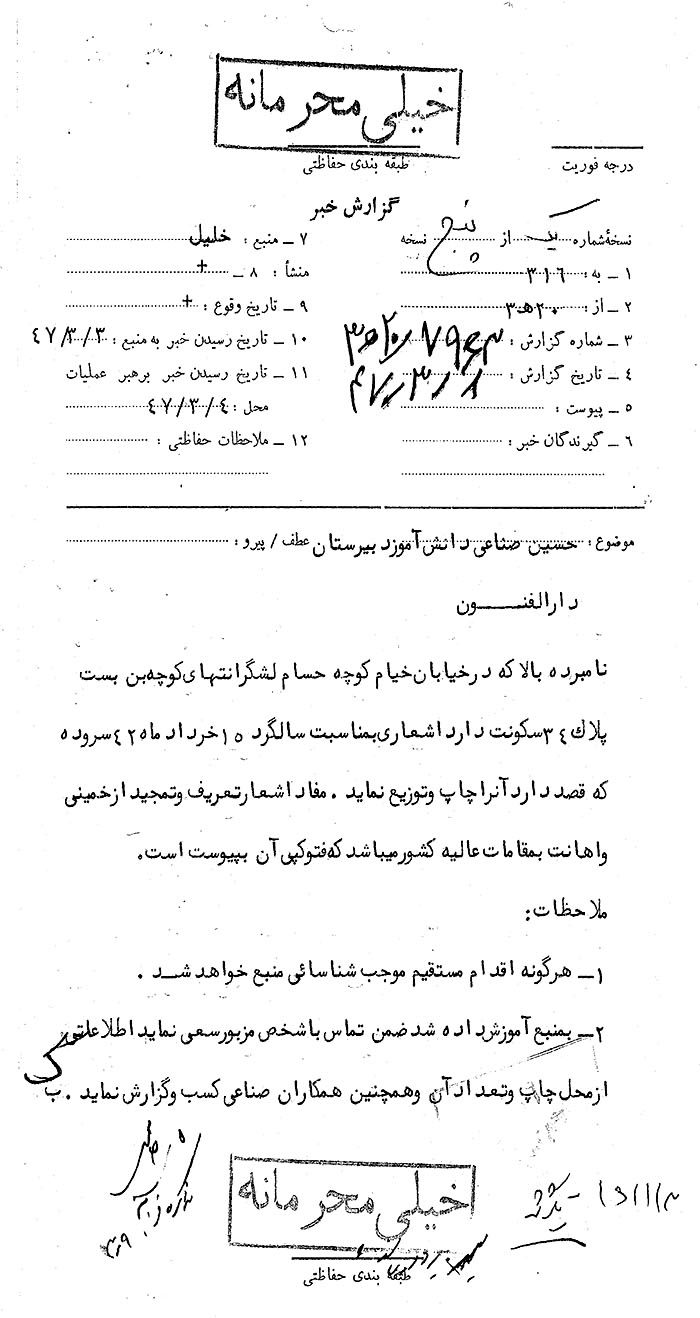 خیلی محرمانه
طبقه بندی حفاظتی
درجه فوریت
گزارش خبر
نسخهٔ شماره یک از پنج نسخه
۱ ـ به : ۳۱۶
۲ ـ از : ۲۰ه۳
۳ ـ شماره گزارش :
۴ ـ تاریخ گزارش : ۴۷/۳/۸
۵ ـ پیوست :
۶ ـ گیرندگان خبر :
۷ ـ منبع : خلیل
۸ ـ منشأ : +
۹ ـ تاریخ وقوع : +
۱۰ ـ تاریخ رسیدن خبر به منبع : ۴۷/۳/۳
۱۱ ـ تاریخ رسیدن خبر برهبر عملیات
محل : ۴۷/۳/۴
۱۲ ـ ملاحظات حفاظتی :
موضوع : حسین صناعی دانش آموز دبیرستان عطف / پیرو :
دارالفنـــون
نامبرده بالا که درخیابان خیام کوچه حسام لشگر انتهای کوچه بن بست
پلاک ۳۴ سکونت دارد اشعاری بمناسبت سالگرد ۱۵ خرداد ماه ۴۲ سروده
که قصد دارد آنرا چاپ و توزیع نماید . مفاد اشعار تعریف و تمجید از خمینی
و اهانت بمقامات عالیه کشور میباشد که فتوکپی آن بپیوست است.
ملاحظات:
۱ـ هرگونه اقدام مستقیم موجب شناسائی منبع خواهد شـد .
۲ـ بمنبع آموزش داده شد ضمن تماس با شخص مزبور سعی نماید اطلاعاتی
از محل چاپ و تعداد آن و همچنین همکاران صناعی کسب و گزارش نماید . ب
خیلی محرمانه
طبقه بندی حفاظتی